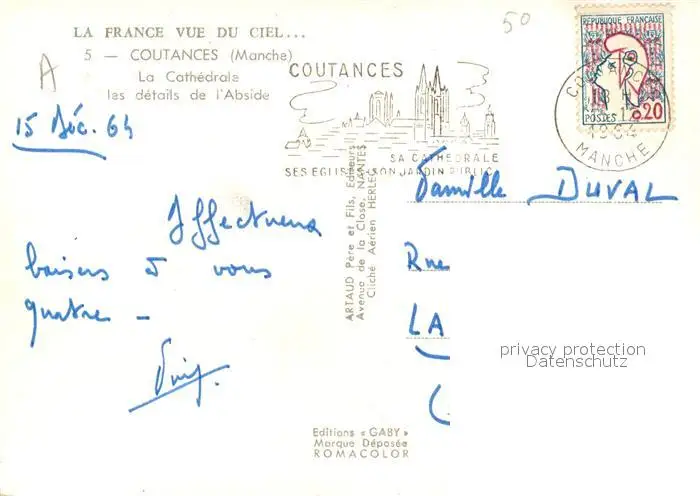 LA FRANCE VUE DU CIEL...
5 — COUTANCES (Manche)
La Cathédrale
les détails de l'Abside
50
A
15 Déc. 64
COUTANCES
SA CATHEDRALE
SES EGLISES SON JARDIN PUBLIC
REPUBLIQUE FRANÇAISE
POSTES 0,20
1964
MANCHE
Affectueux
baisers à vous
quatre -
ARTAUD Père et Fils, Editeurs
Avenue de la Close, NANTES
Cliché Aérien HERLE
Famille DUVAL
Rue
LA
privacy protection
Datenschutz
Editions « GABY »
Marque Déposée
ROMACOLOR